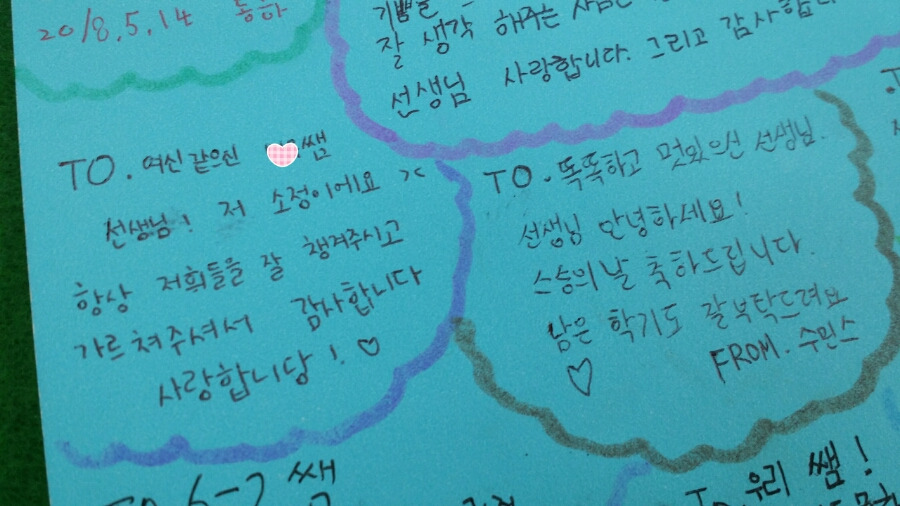 2018.5.14 동하
기쁨을
잘 생각 해주는
선생님 사랑합니다. 그리고 감사합니다
TO. 여신 같으신 쌤
선생님! 저 소정이에요 ><
항상 저희들을 잘 챙겨주시고
가르쳐주셔서 감사합니다
사랑합니당! ♡
TO. 똑똑하고 멋있으신 선생님.
선생님 안녕하세요!
스승의 날 축하드립니다.
남은 학기도 잘부탁드려요
♡ FROM. 수민스
TO 6-7 쌤
To 우리 쌤!